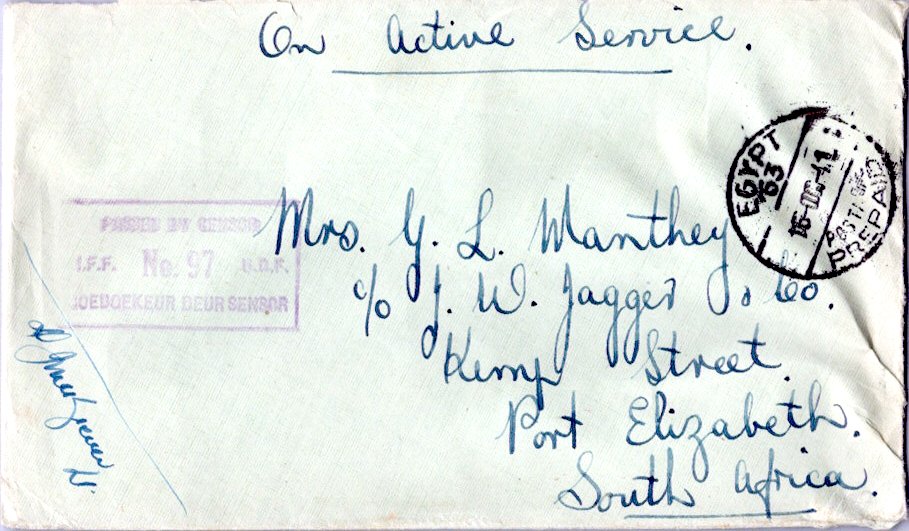 On Active Service.
EGYPT
63
PREPAID
PASSED BY CENSOR
I.F.F. No. 97 U.D.F.
GOEDGEKEUR DEUR SENSOR
Mrs. G. L. Manthey
c/o J. W. Jagger & Co.
Kemp Street.
Port Elizabeth.
South Africa.